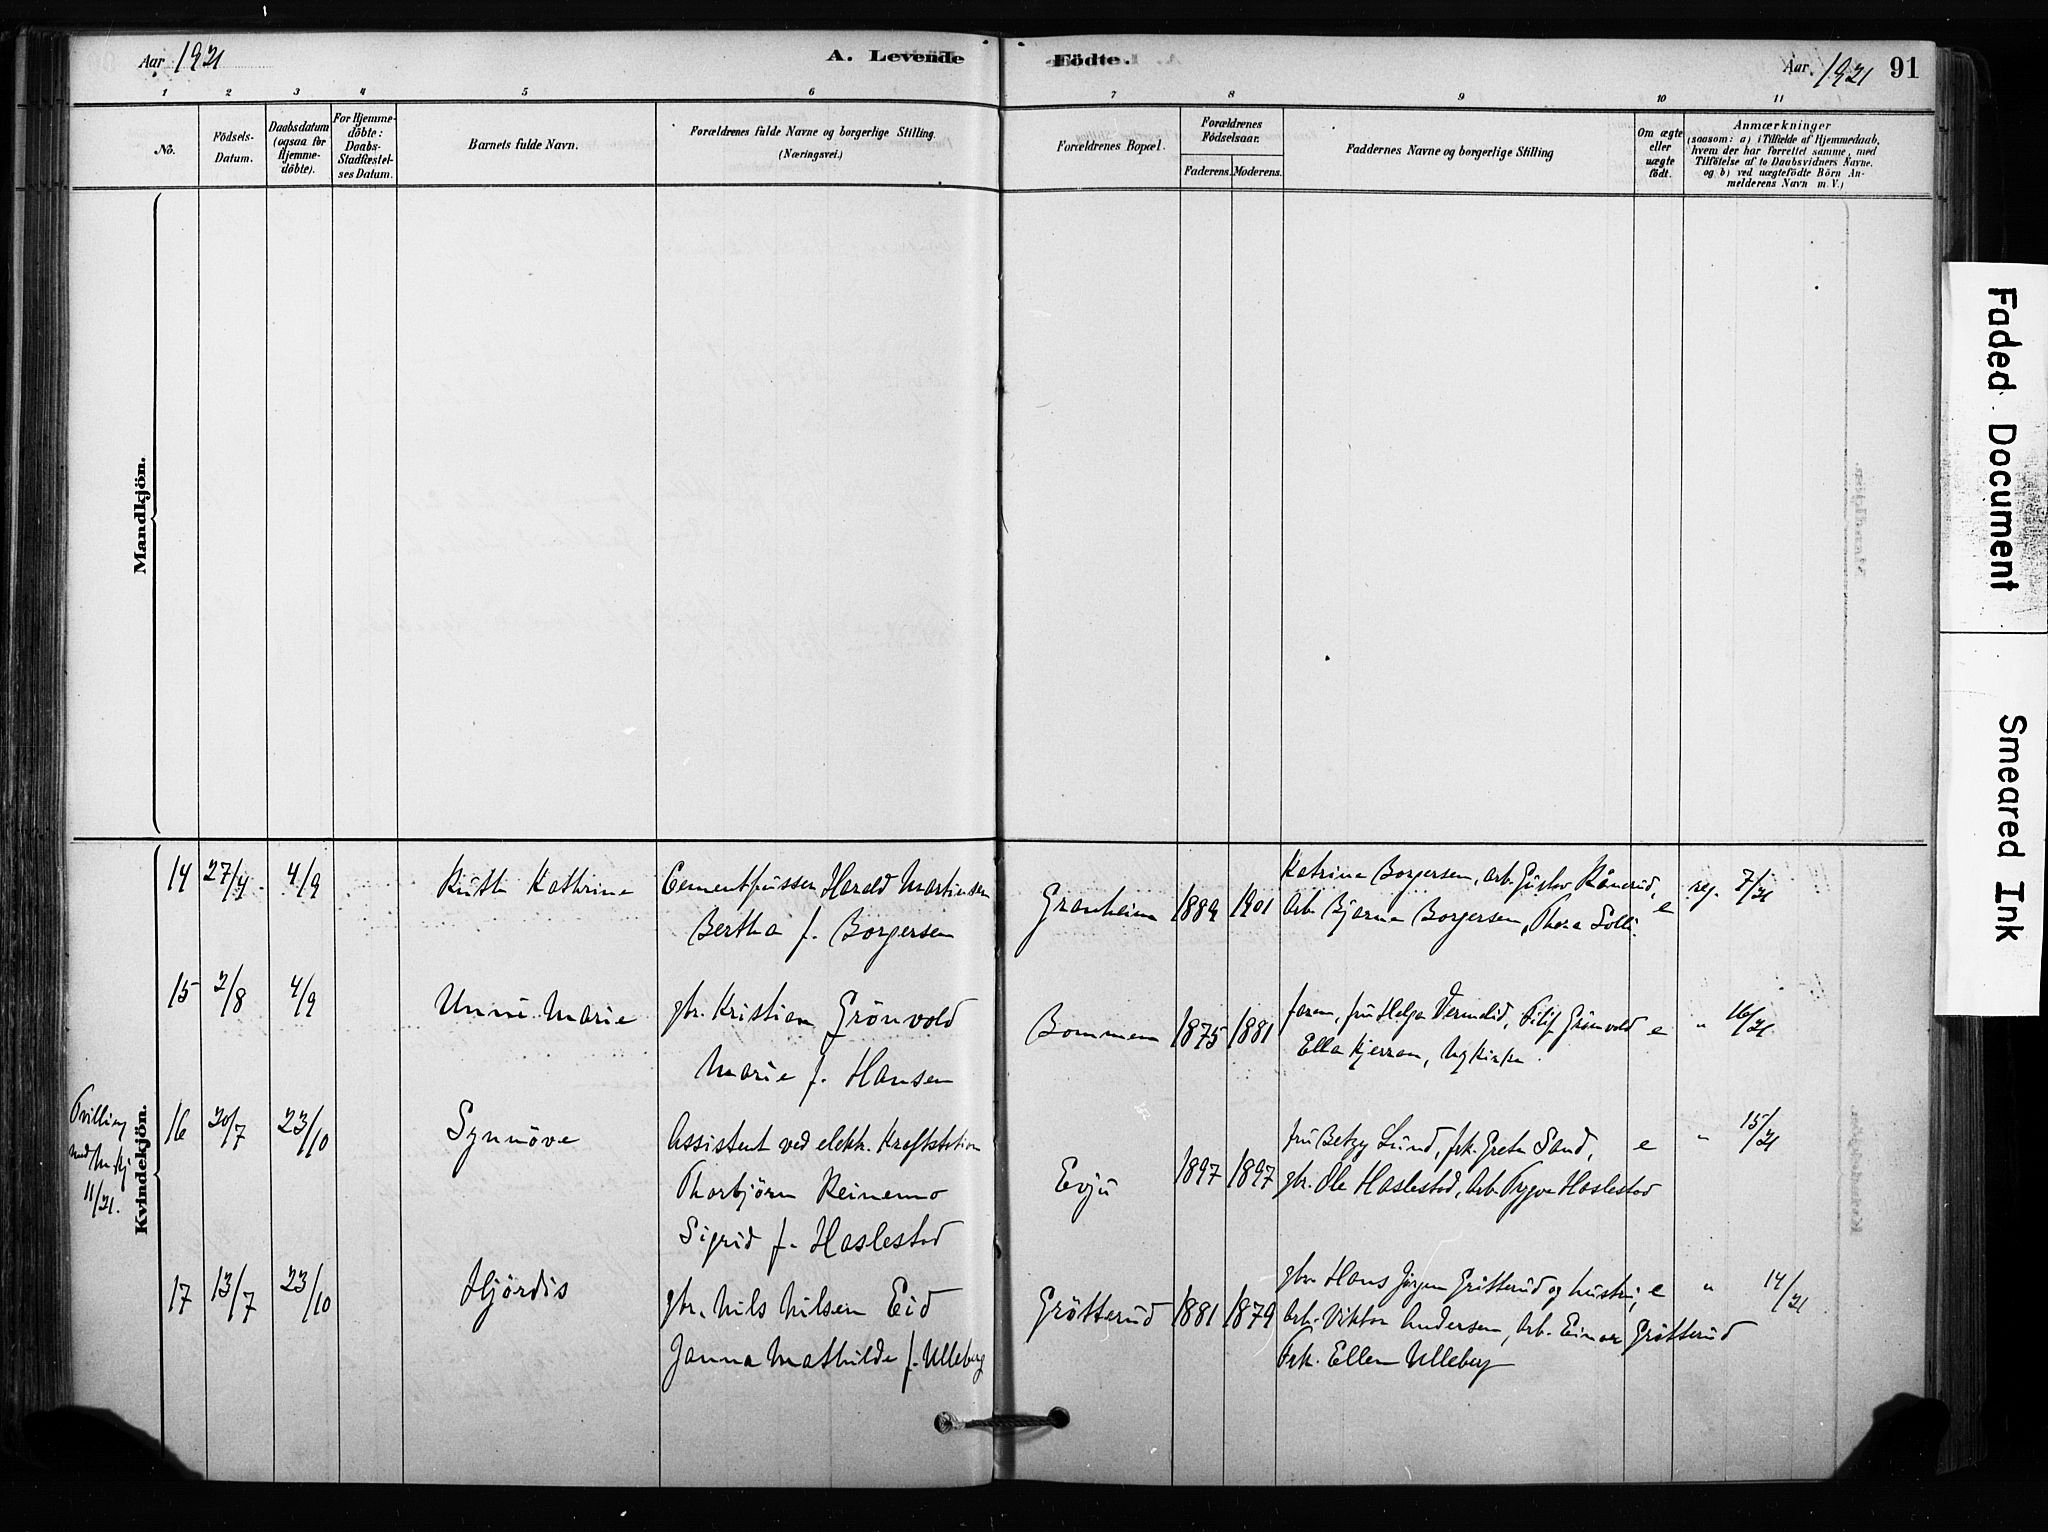 Aar 1921
A. Levende Födte.
Aar 1921 91
1 2 3 4 5 6 7 8 9 10 11
No.
Födsels-Datum.
Daabsdatum (ogsaa for Hjemme-döbte).
For Hjemme-döbte: Daabs-Stadfæstel-ses Datum.
Barnets fulde Navn.
Forældrenes fulde Navne og borgerlige Stilling.
(Næringsvei.)
Forældrenes Bopæl.
Forældrenes Födselsaar.
Faderens. Moderens.
Faddernes Navne og borgerlige Stilling
Om ægte eller uægte födt.
Anmærkninger
(saasom: a) i Tilfælde af Hjemmedaab, hvem der har forrettet samme, med Tilföielse af to Daabsvidners Navne, og b) ved uægtefödte Börn An-melderens Navn m. V.)
Mandkjön.
Kvindekjön.
14 27/4 4/9 Ruth Kathrine Cementpusser Harald Martinsen
Bertha f. Borgersen
Granheim 1889 1901
Katrine Borgersen, arb. Gustav Rånerud,
Arb. Bjarne Borgersen, Thora Solli.
e reg. 7/21
15 2/8 4/9 Unni Marie gbr. Kristian Grönvold
Marie f. Hansen
Bommen 1875 1881
faren, fru Helga Vermelid, Filip Grönvold
Ella Kjerran, Nykirke.
e " 16/21
Tvilling med M.kj. 11/21.
16 20/7 23/10 Synnöve Assistent ved elektr. Kraftstation
Thorbjörn Reinemo
Sigrid f. Haslestad
Evju 1897 1897
fru Betzy Lund, frk. Grete Sand,
gbr. Ole Haslestad, Arb. Trygve Haslestad
e " 15/21
17 13/7 23/10 Hjördis gbr. Nils Nilsen Eid
Janna Mathilde f. Ulleberg
Grötterud 1881 1879
gbr. Hans Jörgen Grötterud og hustru,
Arb. Viktor Andersen, Arb. Einar Grötterud
Frk. Ellen Ulleberg
e " 14/21
Faded Document
Smeared Ink